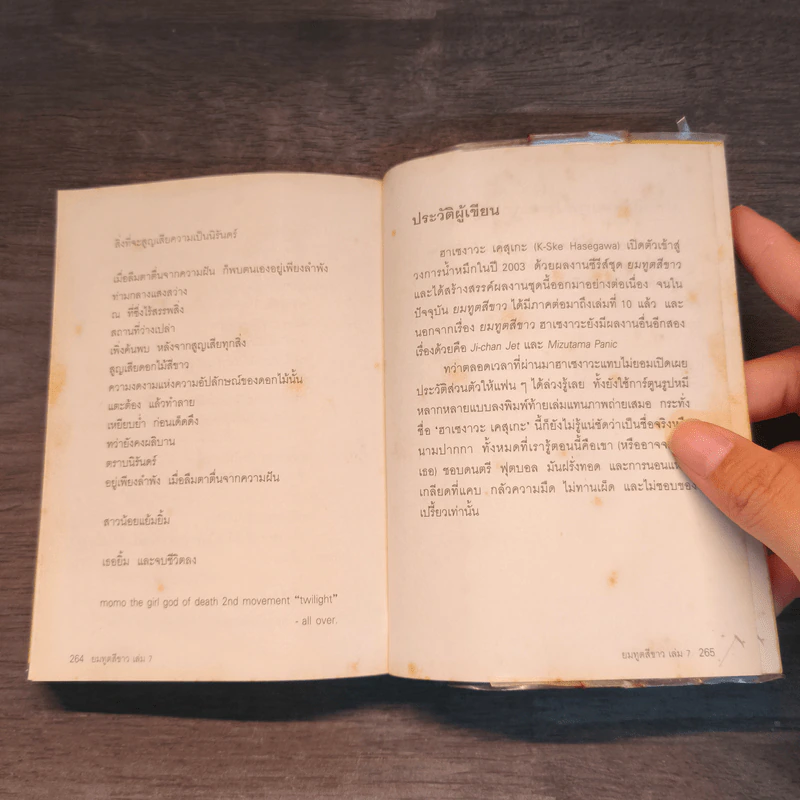 สิ่งที่จะสูญเสียความเป็นนิรันดร์
เมื่อลืมตาตื่นจากความฝัน ก็พบตนเองอยู่เพียงลำพัง
ท่ามกลางแสงสว่าง
ณ ที่ซึ่งไร้สรรพสิ่ง
สถานที่ว่างเปล่า
เพิ่งค้นพบ หลังจากสูญเสียทุกสิ่ง
สูญเสียดอกไม้สีขาว
ความงดงามแห่งความอัปลักษณ์ของดอกไม้นั้น
แตะต้อง แล้วทำลาย
เหยียบย่ำ ก่อนเด็ดดึง
ทว่ายังคงผลิบาน
ตราบนิรันดร์
อยู่เพียงลำพัง เมื่อลืมตาตื่นจากความฝัน
สาวน้อยแย้มยิ้ม
เธอยิ้ม และจบชีวิตลง
momo the girl god of death 2nd movement “twilight”
- all over.
264 ยมทูตสีขาว เล่ม 7
ประวัติผู้เขียน
ฮาเซงาวะ เคสุเกะ (K-Ske Hasegawa) เปิดตัวเข้าสู่
วงการน้ำหมึกในปี 2003 ด้วยผลงานซีรีส์ชุด ยมทูตสีขาว
และได้สร้างสรรค์ผลงานชุดนี้ออกมาอย่างต่อเนื่อง จนใน
ปัจจุบัน ยมทูตสีขาว ได้มีภาคต่อมาถึงเล่มที่ 10 แล้ว และ
นอกจากเรื่อง ยมทูตสีขาว ฮาเซงาวะยังมีผลงานอื่นอีกสอง
เรื่องด้วยคือ Ji-chan Jet และ Mizutama Panic
ทว่าตลอดเวลาที่ผ่านมาฮาเซงาวะแทบไม่ยอมเปิดเผย
ประวัติส่วนตัวให้แฟน ๆ ได้ล่วงรู้เลย ทั้งยังใช้การ์ตูนรูปหมี
หลากหลายแบบลงพิมพ์ท้ายเล่มแทนภาพถ่ายเสมอ กระทั่ง
ชื่อ ‘ฮาเซงาวะ เคสุเกะ’ นี้ก็ยังไม่รู้แน่ชัดว่าเป็นชื่อจริงหรือ
นามปากกา ทั้งหมดที่เรารู้ตอนนี้คือเขา (หรืออาจจะ
เธอ) ชอบดนตรี ฟุตบอล มันฝรั่งทอด และการนอน
เกลียดที่แคบ กลัวความมืด ไม่ทานเผ็ด และไม่ชอบของ
เปรี้ยวเท่านั้น
ยมทูตสีขาว เล่ม 7 265